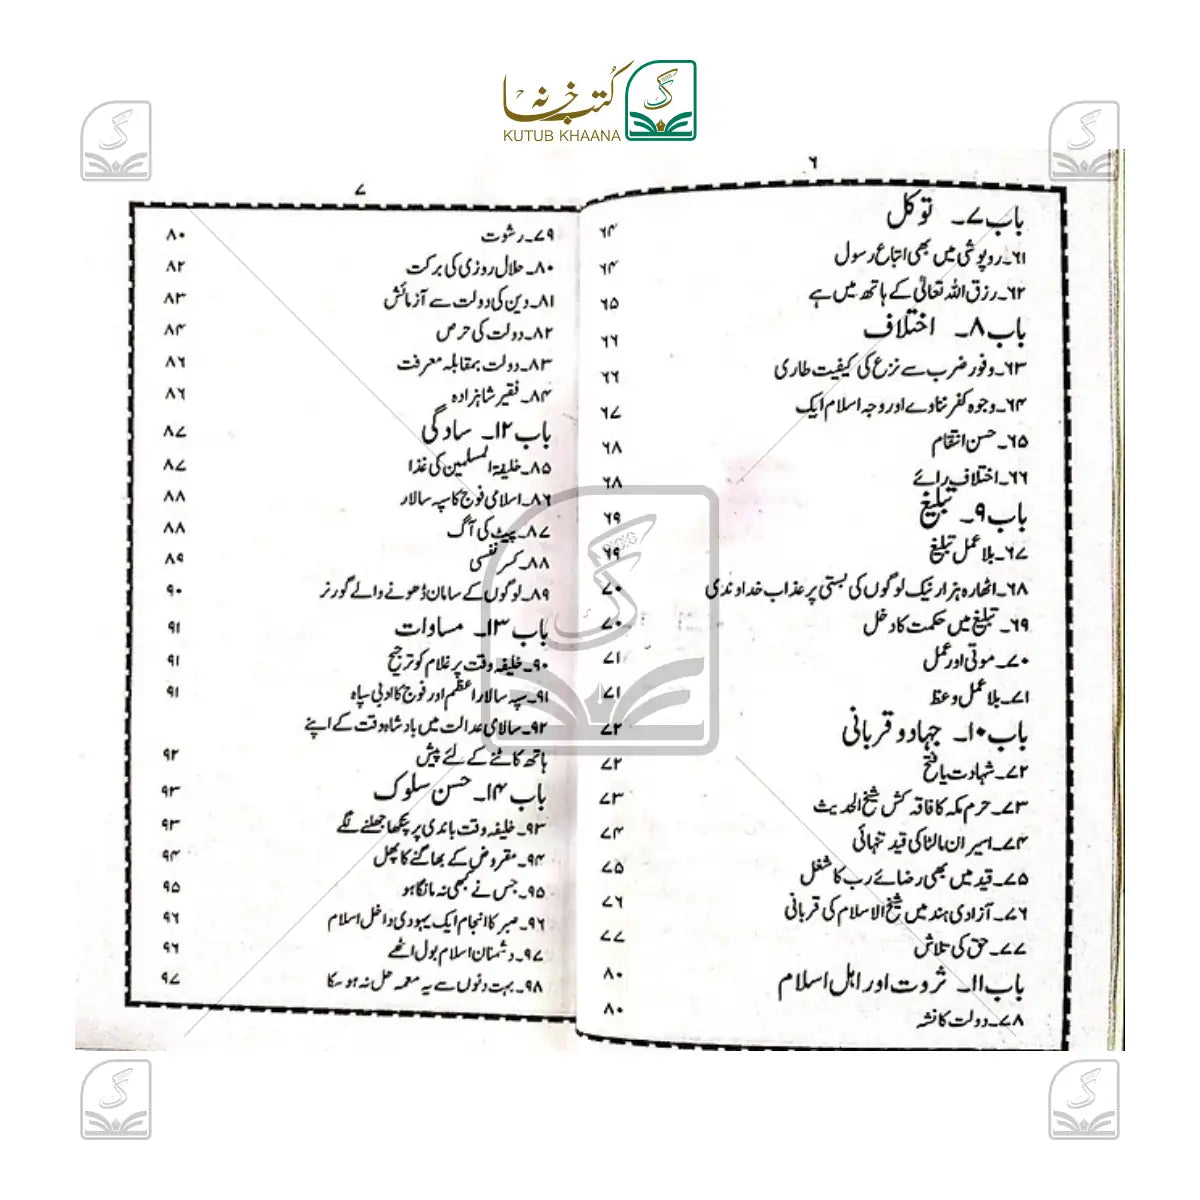 کتب خانہ
KUTUB KHAANA
۶
باب ۷۔ توکل ۶۴
۶۱۔ روپوشی میں بھی اتباع رسول ۶۴
۶۲۔ رزق اللہ تعالیٰ کے ہاتھ میں ہے ۶۵
باب ۸۔ اختلاف ۶۶
۶۳۔ وفور ضرب سے نزع کی کیفیت طاری ۶۶
۶۴۔ وجوہ کفر ننانوے اور وجہ اسلام ایک ۶۷
۶۵۔ حسن انتقام ۶۸
۶۶۔ اختلاف رائے ۶۸
باب ۹۔ تبلیغ ۶۹
۶۷۔ بلا عمل تبلیغ ۶۹
۶۸۔ اٹھارہ ہزار نیک لوگوں کی بستی پر عذاب خداوندی ۷۰
۶۹۔ تبلیغ میں حکمت کا دخل ۷۰
۷۰۔ موتی اور عمل ۷۱
۷۱۔ بلا عمل وعظ ۷۱
باب ۱۰۔ جہاد و قربانی ۷۲
۷۲۔ شہادت یا فتح ۷۲
۷۳۔ حرم مکہ کا فاقہ کش شیخ الحدیث ۷۳
۷۴۔ اسیران مالٹا کی قید تنہائی ۷۴
۷۵۔ قید میں بھی رضائے رب کا شغل ۷۵
۷۶۔ آزادی ہند میں شیخ الاسلام کی قربانی ۷۶
۷۷۔ حق کی تلاش ۷۷
باب ۱۱۔ ثروت اور اہل اسلام ۸۰
۷۸۔ دولت کا نشہ ۸۰
۷
۷۹۔ رشوت ۸۰
۸۰۔ حلال روزی کی برکت ۸۲
۸۱۔ دین کی دولت سے آزمائش ۸۳
۸۲۔ دولت کی حرص ۸۴
۸۳۔ دولت بمقابلہ معرفت ۸۶
۸۴۔ فقیر شاہزادہ ۸۶
باب ۱۲۔ سادگی ۸۷
۸۵۔ خلیفۃ المسلمین کی غذا ۸۷
۸۶۔ اسلامی فوج کا سپہ سالار ۸۸
۸۷۔ پیٹ کی آگ ۸۸
۸۸۔ کسر نفسی ۸۹
۸۹۔ لوگوں کے سامان ڈھونے والے گورنر ۹۰
باب ۱۳۔ مساوات ۹۱
۹۰۔ خلیفہ وقت پر غلام کو ترجیح ۹۱
۹۱۔ سپہ سالار اعظم اور فوج کا ادنیٰ سپاہ ۹۱
۹۲۔ سالای عدالت میں بادشاہ وقت کے اپنے
ہاتھ کاٹنے کے لئے پیش ۹۲
باب ۱۴۔ حسن سلوک ۹۳
۹۳۔ خلیفہ وقت باندی پر پنکھا جھلنے لگے ۹۳
۹۴۔ مقروض کے بھاگنے کا پھل ۹۴
۹۵۔ جس نے کبھی نہ مانگا ہو ۹۵
۹۶۔ صبر کا انجام ایک یہودی داخل اسلام ۹۶
۹۷۔ دشمنان اسلام بول اٹھے ۹۶
۹۸۔ بہت دنوں سے یہ معمہ حل نہ ہو سکا ۹۷